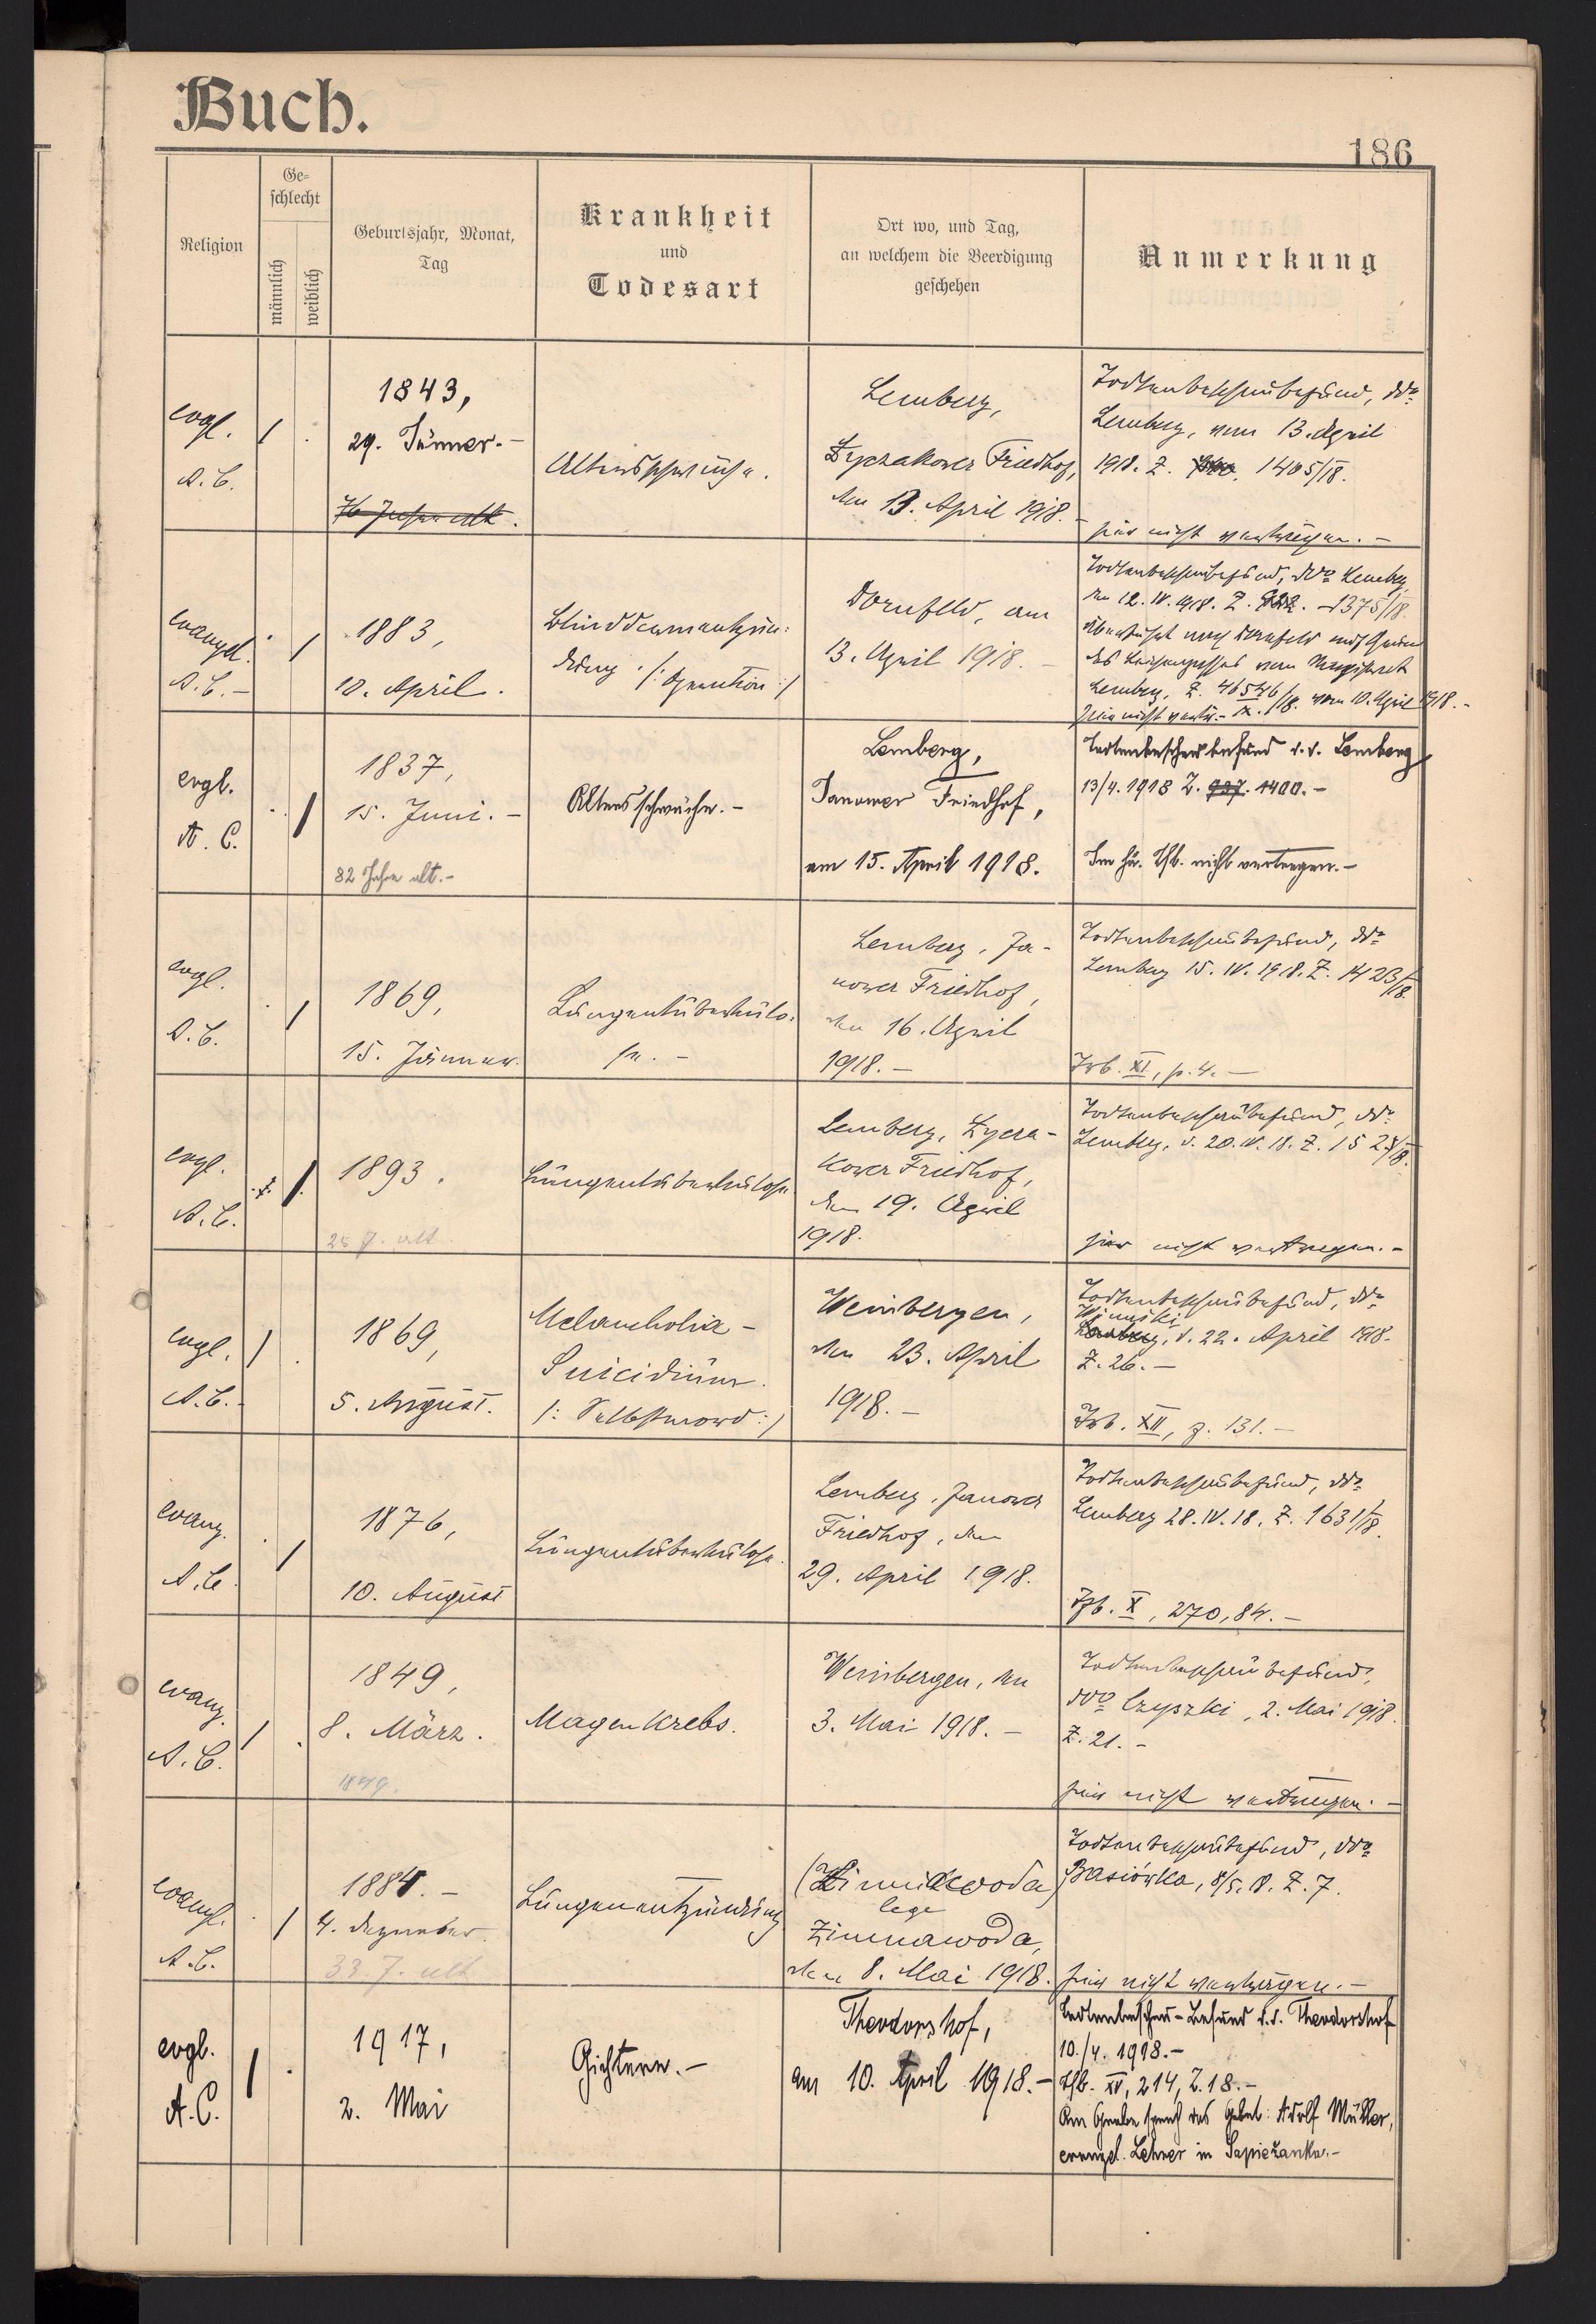 Buch.
186
Religion
Ge=
schlecht
männlich
weiblich
Geburtsjahr, Monat,
Tag
Krankheit
und
Todesart
Ort wo, und Tag,
an welchem die Beerdigung
geschehen
Anmerkung
evgl.
A.C.
1843,
29. Jänner.-
76 Jahre alt.
Altersschwäche.
Lemberg,
Łyczakower Friedhof,
den 13. April 1918.-
Todtenbeschaubefund, ddo
Lemberg, vom 13. April
1918. Z. 1405/18.
hier nicht eingetragen.-
evangel.
A.C.-
1883,
10. April.
Blinddarmentzün:
dung. /: Operation :/
Dornfeld, am
13. April 1918.-
Todtenbeschaubefund, ddo Lemberg
den 12. IV. 1918. Z. 1375/18.
Überführt nach Dornfeld auf Grund
des Leichenpasses vom Magistrat
Lemberg, Z. 46546/IX./18. vom 10. April 1918.-
hier nicht
evgl.
A.C.
1837,
15. Juni.-
82 Jahre alt.-
Altersschwäche.-
Lemberg,
Janower Friedhof,
am 15. April 1918.
Todtenbeschaubefund d.d. Lemberg
13/4. 1918 Z. 937. 1400.-
Im hs. Tfb. nicht vertragen.-
evgl.
A.C.
1869,
15. Jänner.
Lungentuberkulo:
se.-
Lemberg, Ja-
nower Friedhof,
den 16. April
1918.-
Todtenbeschaubefund, ddo
Lemberg 15. IV. 1918. Z. 1423/18.
Trb. XI, p. 4.-
evgl.
A.C.
1893.
25 J. alt.
Lungentuberkulose
Lemberg, Łycza-
kower Friedhof,
den 19. April
1918.
Todtenbeschaubefund, ddo
Lemberg, d. 20. IV. 18. Z. 1525/18.
hier nicht eingetragen.-
evgl.
A.C.-
1869,
5. August.
Melancholia-
Suicidium.
/: Selbstmord :/
Weinbergen,
den 23. April
1918.-
Todtenbeschaubefund, ddo
Winniki
Lemberg, d. 22. April 1918.
Z. 26.-
Trb. XII, p. 131.-
evang.
A.C.
1876,
10. August
Lungentuberkulose.
Lemberg, Janower
Friedhof, den
29. April 1918.
Todtenbeschaubefund, ddo
Lemberg 28. IV. 18. Z. 1631/18.
Tfb. X, 270, 84.-
evang.
A.C.
1849,
8. März.
1849.
Magenkrebs.
Weinbergen, den
3. Mai 1918.-
Todtenbeschaubefund,
ddo Czyszki, 2. Mai 1918.
Z. 21.-
hier nicht eingetragen.-
evangl.
A.C.
1884.-
4. Dezember.
33 J. alt
Lungenentzündung
(Zimnawoda)
lege
Zimnawoda,
den 8. Mai 1918.
Todtenbeschaubefund, ddo
Basiówka, 8/5. 18. Z. 7.
hier nicht eingetragen.-
evgl.
A.C.
1917,
2. Mai
Gichtern.-
Theodorshof,
am 10. April 1918.-
Todtenbeschau-Befund d.d. Theodorshof
10./4. 1918.-
Tfb. XV, 214, Z. 18.-
Am Grabe sprach das Gebet: Adolf Müller,
evangel. Lehrer in Sapieżanka.-